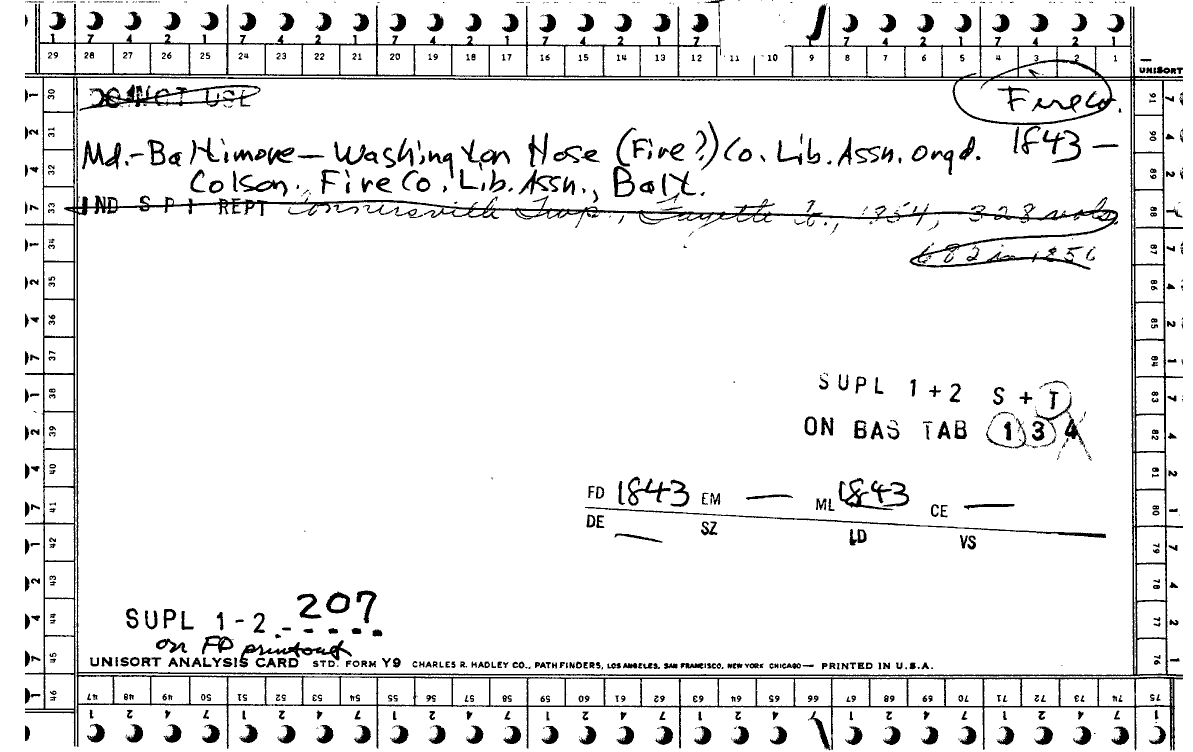 7 4 2 1 7 4 2 1 7 4 2 1 7 4 2 1 7 7 4 2 1 7 4 2 1
29 28 27 26 25 24 23 22 21 20 19 18 17 16 15 14 13 12 11 10 9 8 7 6 5 4 3 2 1
UNISORT
DO NOT USE
Fire Co.
Md.-Baltimore—Washington Hose (Fire?) Co. Lib. Assn. orgd. 1843—
Colson. Fire Co. Lib. Assn., Balt.
IND S P I REPT Connersville Twp., Fayette Co., 1854, 328 vols.
682 in 1856
SUPL 1+2 S + T
ON BAS TAB 1 3 4
FD 1843 EM — ML 1843 CE —
DE — SZ LD VS
SUPL 1-2 207
on FD printout
UNISORT ANALYSIS CARD STD. FORM Y9 CHARLES R. HADLEY CO., PATHFINDERS, LOS ANGELES, SAN FRANCISCO, NEW YORK CHICAGO — PRINTED IN U.S.A.
30 31 32 33 34 35 36 37 38 39 40 41 42 43 44 45 46
91 90 89 88 87 86 85 84 83 82 81 80 79 78 77 76 75
47 48 49 50 51 52 53 54 55 56 57 58 59 60 61 62 63 64 65 66 67 68 69 70 71 72 73 74
1 2 4 7 1 2 4 7 1 2 4 7 1 2 4 7 1 2 4 7 1 2 4 7 1 2 4 7